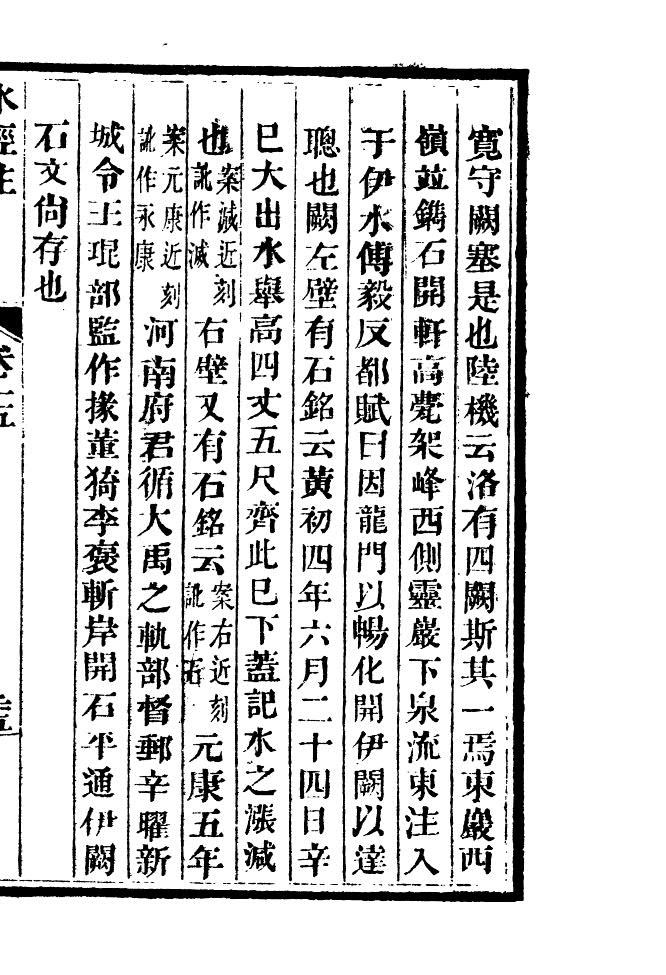 寬守闕塞是也陸機云洛有四闕斯其一焉東巖西
嶺竝鐫石開軒高甍架峰西側靈巖下泉流東注入
于伊水傅毅反都賦曰因龍門以暢化開伊闕以達
聰也闕左壁有石銘云黃初四年六月二十四日辛
巳大出水舉高四丈五尺齊此已下蓋記水之漲減
也案減近刻訛作滅右壁又有石銘云案右近刻訛作石元康五年
案元康近刻訛作永康河南府君循大禹之軌部督郵辛曜新
城令王琨部監作掾董猗李褒斬岸開石平通伊闕
石文尙存也
水經注 卷十五